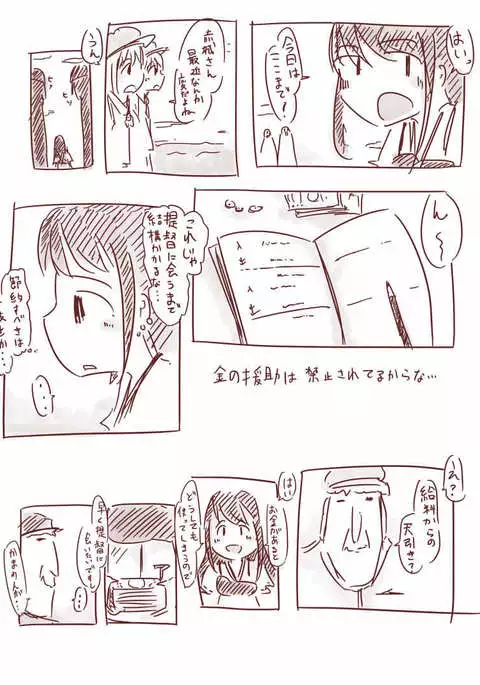 はいっ
今日は
ここまで！
赤城さん
最近なんか
変だよね
うん
ヒソ
ん〜
これじゃ
提督に会うまで
結構かかるな…
節約すべきは
…
金の援助は 禁止されてるからな…
え？
給料からの
天引きで
はい
お金があると
どうしても
使ってしまうので
早く提督に
会いたいです！
…
かまわんが…